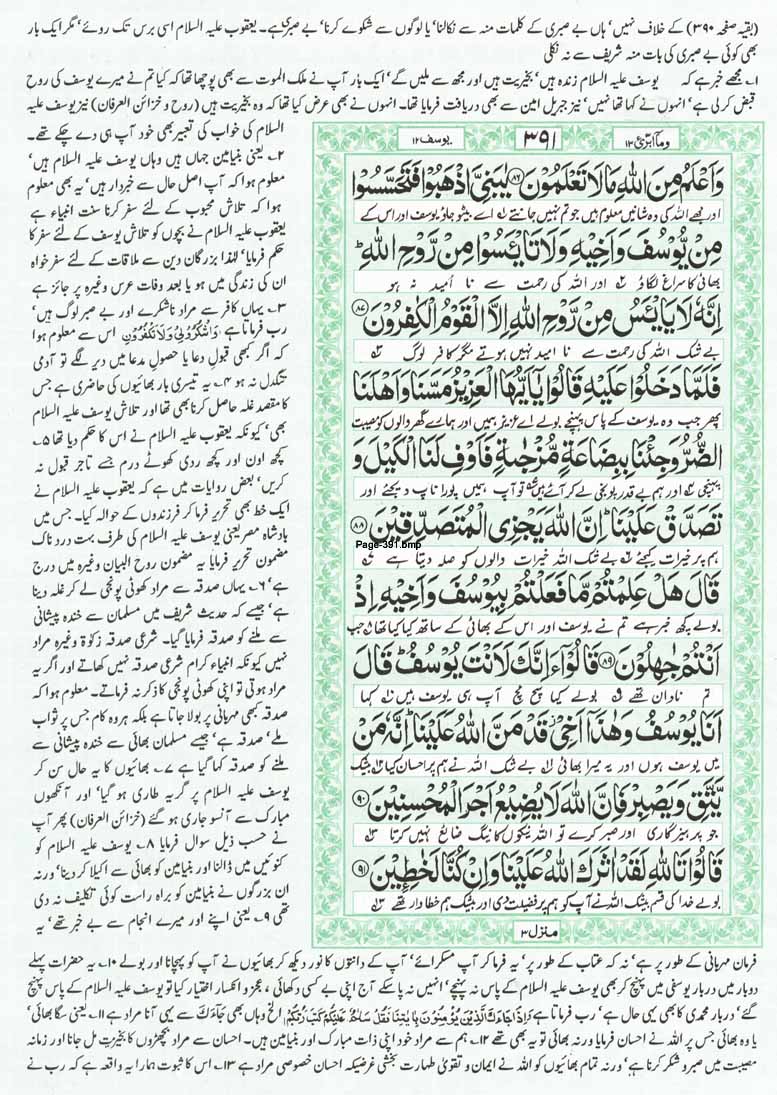 (بقیہ صفحہ ۳۹۰) کے خلاف نہیں' ہاں بے صبری کے کلمات منہ سے نکالنا' یا لوگوں سے شکوے کرنا' بے صبری ہے۔ یعقوب علیہ السلام اسی برس تک روئے' مگر ایک بار
بھی کوئی بے صبری کی بات منہ شریف سے نہ نکلی
۱۔ مجھے خبر ہے کہ یوسف علیہ السلام زندہ ہیں' بخیریت ہیں اور مجھ سے ملیں گے' ایک بار آپ نے ملک الموت سے بھی پوچھا تھا کہ کیا تم نے میرے یوسف کی روح
قبض کر لی ہے' انہوں نے کہا تھا نہیں' نیز جبریل امین سے بھی دریافت فرمایا تھا۔ انہوں نے بھی عرض کیا تھا کہ وہ بخیریت ہیں (روح و خزائن العرفان) نیز یوسف علیہ
السلام کی خواب کی تعبیر بھی خود آپ ہی دے چکے تھے۔
۲۔ یعنی بنیامین جہاں ہیں وہاں یوسف علیہ السلام ہیں'
معلوم ہوا کہ آپ اصل حال سے خبردار ہیں' یہ بھی معلوم
ہوا کہ تلاش محبوب کے لئے سفر کرنا سنت انبیاء ہے
یعقوب علیہ السلام نے بچوں کو تلاش یوسف کے لئے سفر کا
حکم فرمایا' لہذا بزرگان دین سے ملاقات کے لئے سفر خواہ
ان کی زندگی میں ہو یا بعد وفات عرس وغیرہ پر جائز ہے
۳۔ یہاں کافر سے مراد ناشکرے اور بے صبر لوگ ہیں'
رب فرماتا ہے وَاشْكُرُوْا لِیْ وَلَا تَكْفُرُوْنِ اس سے معلوم ہوا
کہ اگر کبھی قبول دعا یا حصول مدعا میں دیر لگے تو آدمی
تنگدل نہ ہو ۴۔ یہ تیسری بار بھائیوں کی حاضری ہے جس
کا مقصد غلہ حاصل کرنا بھی تھا اور تلاش یوسف علیہ السلام
بھی' کیونکہ یعقوب علیہ السلام نے اس کا حکم دیا تھا ۵۔
کچھ اون اور کچھ ردی کھوٹے درم جسے تاجر قبول نہ
کریں' بعض روایات میں ہے کہ یعقوب علیہ السلام نے
ایک خط بھی تحریر فرما کر فرزندوں کے حوالہ کیا۔ جس میں
بادشاہ مصر یعنی یوسف علیہ السلام کی طرف بہت درد ناک
مضمون تحریر فرمایا یہ مضمون روح البیان وغیرہ میں درج
ہے' ۶۔ یہاں صدقہ سے مراد کھوٹی پونجی لے کر غلہ دینا
ہے' جیسے کہ حدیث شریف میں مسلمان سے خندہ پیشانی
سے ملنے کو صدقہ فرمایا گیا۔ شرعی صدقہ زکوٰة وغیرہ مراد
نہیں کیونکہ انبیاء کرام شرعی صدقہ نہیں کھاتے اور اگر یہ
مراد ہوتی تو اپنی کھوٹی پونجی کا ذکر نہ فرماتے۔ معلوم ہوا کہ
صدقہ کبھی مہربانی پر بولا جاتا ہے بلکہ ہر وہ کام جس پر ثواب
ملے' صدقہ ہے' جیسے مسلمان بھائی سے خندہ پیشانی سے
ملنے کو صدقہ کہا گیا ہے ۷۔ بھائیوں کا یہ حال سن کر
یوسف علیہ السلام پر گریہ طاری ہو گیا' اور آنکھوں
مبارک سے آنسو جاری ہو گئے (خزائن العرفان) پھر آپ
نے حسب ذیل سوال فرمایا ۸۔ یوسف علیہ السلام کو
کنوئیں میں ڈالنا اور بنیامین کو بھائی سے اکیلا کر دینا' ورنہ
ان بزرگوں نے بنیامین کو براہ راست کوئی تکلیف نہ دی
تھی ۹۔ یعنی اپنے اور میرے انجام سے بے خبر تھے' یہ
وما ابرئ ۱۳
۳۹۱
یوسف ۱۲
وَاَعْلَمُ مِنَ اللّٰهِ مَا لَا تَعْلَمُوْنَ ۝۸۶ یٰبَنِیَّ اذْهَبُوْا فَتَحَسَّسُوْا
اور مجھے اللہ کی وہ شانیں معلوم ہیں جو تم نہیں جانتے ۱ اے بیٹو جاؤ یوسف اور اس کے
مِنْ یُّوْسُفَ وَاَخِیْهِ وَلَا تَایْـَٔسُوْا مِنْ رَّوْحِ اللّٰهِ ؕ
بھائی کا سراغ لگاؤ ۲ اور اللہ کی رحمت سے نا امید نہ ہو
اِنَّهٗ لَا یَایْـَٔسُ مِنْ رَّوْحِ اللّٰهِ اِلَّا الْقَوْمُ الْكٰفِرُوْنَ ۝۸۷
بے شک اللہ کی رحمت سے نا امید نہیں ہوتے مگر کافر لوگ ۳
فَلَمَّا دَخَلُوْا عَلَیْهِ قَالُوْا یٰۤاَیُّهَا الْعَزِیْزُ مَسَّنَا وَاَهْلَنَا
پھر جب وہ یوسف کے پاس پہنچے بولے اے عزیز ہمیں اور ہمارے گھر والوں کو مصیبت
الضُّرُّ وَجِئْنَا بِبِضَاعَةٍ مُّزْجٰىةٍ فَاَوْفِ لَنَا الْكَیْلَ وَ
پہنچی ۴ اور ہم بے قدر پونجی لے کر آئے ہیں ۵ تو آپ ہمیں پورا ناپ دیجئے اور
تَصَدَّقْ عَلَیْنَا ؕ اِنَّ اللّٰهَ یَجْزِی الْمُتَصَدِّقِیْنَ ۝۸۸
Page-391.bmp
ہم پر خیرات کیجئے ۶ بے شک اللہ خیرات والوں کو صلہ دیتا ہے ۷
قَالَ هَلْ عَلِمْتُمْ مَّا فَعَلْتُمْ بِیُوْسُفَ وَاَخِیْهِ اِذْ
بولے کچھ خبر ہے تم نے یوسف اور اس کے بھائی کے ساتھ کیا کیا تھا ۸ جب
اَنْتُمْ جٰهِلُوْنَ ۝۸۹ قَالُوْۤا ءَاِنَّكَ لَاَنْتَ یُوْسُفُ ؕ قَالَ
تم نادان تھے ۹ بولے کیا سچ مچ آپ ہی یوسف ہیں ۱۰ کہا
اَنَا یُوْسُفُ وَهٰذَاۤ اَخِیْ ؗ قَدْ مَنَّ اللّٰهُ عَلَیْنَا ؕ اِنَّهٗ مَنْ
میں یوسف ہوں اور یہ میرا بھائی ۱۱ بے شک اللہ نے ہم پر احسان کیا ۱۲ بیشک
یَّتَّقِ وَیَصْبِرْ فَاِنَّ اللّٰهَ لَا یُضِیْعُ اَجْرَ الْمُحْسِنِیْنَ ۝۹۰
جو پرہیزگاری اور صبر کرے تو اللہ نیکوں کا نیگ ضائع نہیں کرتا ۱۳
قَالُوْا تَاللّٰهِ لَقَدْ اٰثَرَكَ اللّٰهُ عَلَیْنَا وَاِنْ كُنَّا لَخٰطِـِٕیْنَ ۝۹۱
بولے خدا کی قسم بیشک اللہ نے آپ کو ہم پر فضیلت دی اور بیشک ہم خطاوار تھے
منزل ۳
فرمان مہربانی کے طور پر ہے' نہ کہ عتاب کے طور پر' یہ فرما کر آپ مسکرائے' آپ کے دانتوں کا نور دیکھ کر بھائیوں نے آپ کو پہچانا اور بولے ۱۰۔ یہ حضرات پہلے
دوبار میں دربار یوسفی میں پہنچ کر بھی یوسف علیہ السلام کے پاس نہ پہنچے' انہیں نہ پا سکے آج اپنی بے کسی دکھائی' عجز و انکسار اختیار کیا تو یوسف علیہ السلام کے پاس پہنچ
گئے' دربار محمدی کا بھی یہی حال ہے' رب فرماتا ہے وَاِذَا جَآءَكَ الَّذِیْنَ یُؤْمِنُوْنَ بِاٰیٰتِنَا فَقُلْ سَلٰمٌ عَلَیْكُمْ كَتَبَ رَبُّكُمْ الخ وہاں بھی جَآءَكَ سے یہی آنا مراد ہے ۱۱۔ یعنی سگا بھائی'
یا وہ بھائی جس پر اللہ نے احسان فرمایا ورنہ بھائی تو یہ بھی تھے ۱۲۔ ہم سے مراد خود اپنی ذات مبارک اور بنیامین ہیں۔ احسان سے مراد بچھڑوں کا بخیریت مل جانا اور زمانہ
مصیبت میں صبر و شکر کرنا ہے' ورنہ تمام بھائیوں کو اللہ نے ایمان و تقویٰ طہارت بخشی غرضیکہ احسان خصوصی مراد ہے ۱۳۔ اس کا ثبوت ہمارا یہ واقعہ ہے کہ رب نے